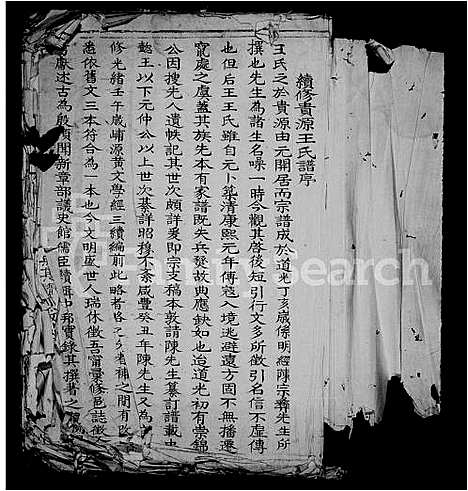 續修貴源王氏譜序
王氏之於貴源由元開居而宗譜成於道光丁亥歲係明經陳宗彝先生所
撰也先生為諸生名噪一時今觀其啓後短引行文多所徵引名信不虛傳
也但后王王氏雖自元卜築清康熙元年傳寇入境逃避遠方固不無播遷
竄處之虞蓋其族先本有家譜既失兵燹故典應缺如也迨道光初有崇錦
公因搜先人遺帙記其世次頗詳爰即宗支稿本敦請陳先生纂訂譜載出
懿王以下元仲公以上世次綦詳昭穆不紊咸豐癸丑年陳先生又為
修光緒壬午歲峬源黄文學經三續編前此略者
悉依舊文三本符合為一本也今文明盛世人瑞休徵吾甯彙修邑誌徵
獻述古為殷頃開新章部議史館儒臣續
FamilySearch